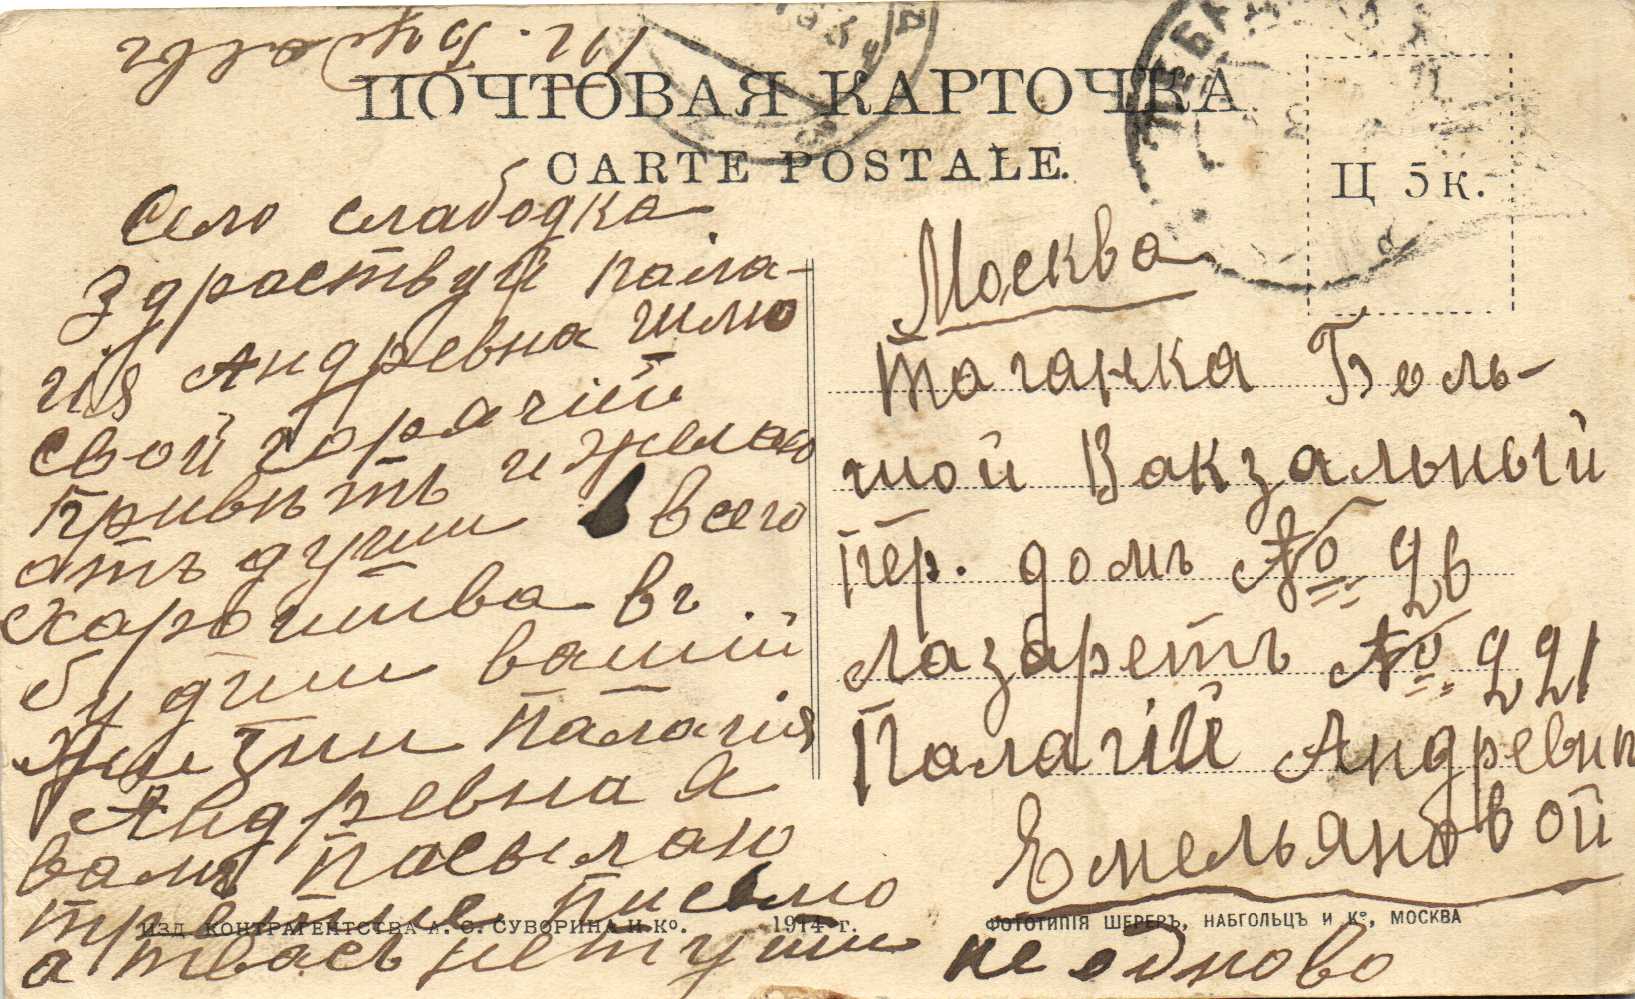 ПОЧТОВАЯ КАРТОЧКА
CARTE POSTALE.
Ц 5 к.
Село слабодка
Здраствуй пала-
гія Андревна шлю
свой горячій
привѣтъ и желаю
отъ души всего
харошва въ
будуши вашій
жизни Палагія
Андревна я
вамъ пасылаю
третие письмо
а твасъ нету
не одново
Москва
Таганка Боль-
шой Вакзальный
пер. домъ № 26
Лазаретъ № 221
Палагій Андревни
Емельяновой
ИЗД. КОНТРАГЕНТСТВА А. С. СУВОРИНА И Ко. 1914 г.
ФОТОТИПІЯ ШЕРЕРЪ, НАБГОЛЬЦЪ И Ко, МОСКВА